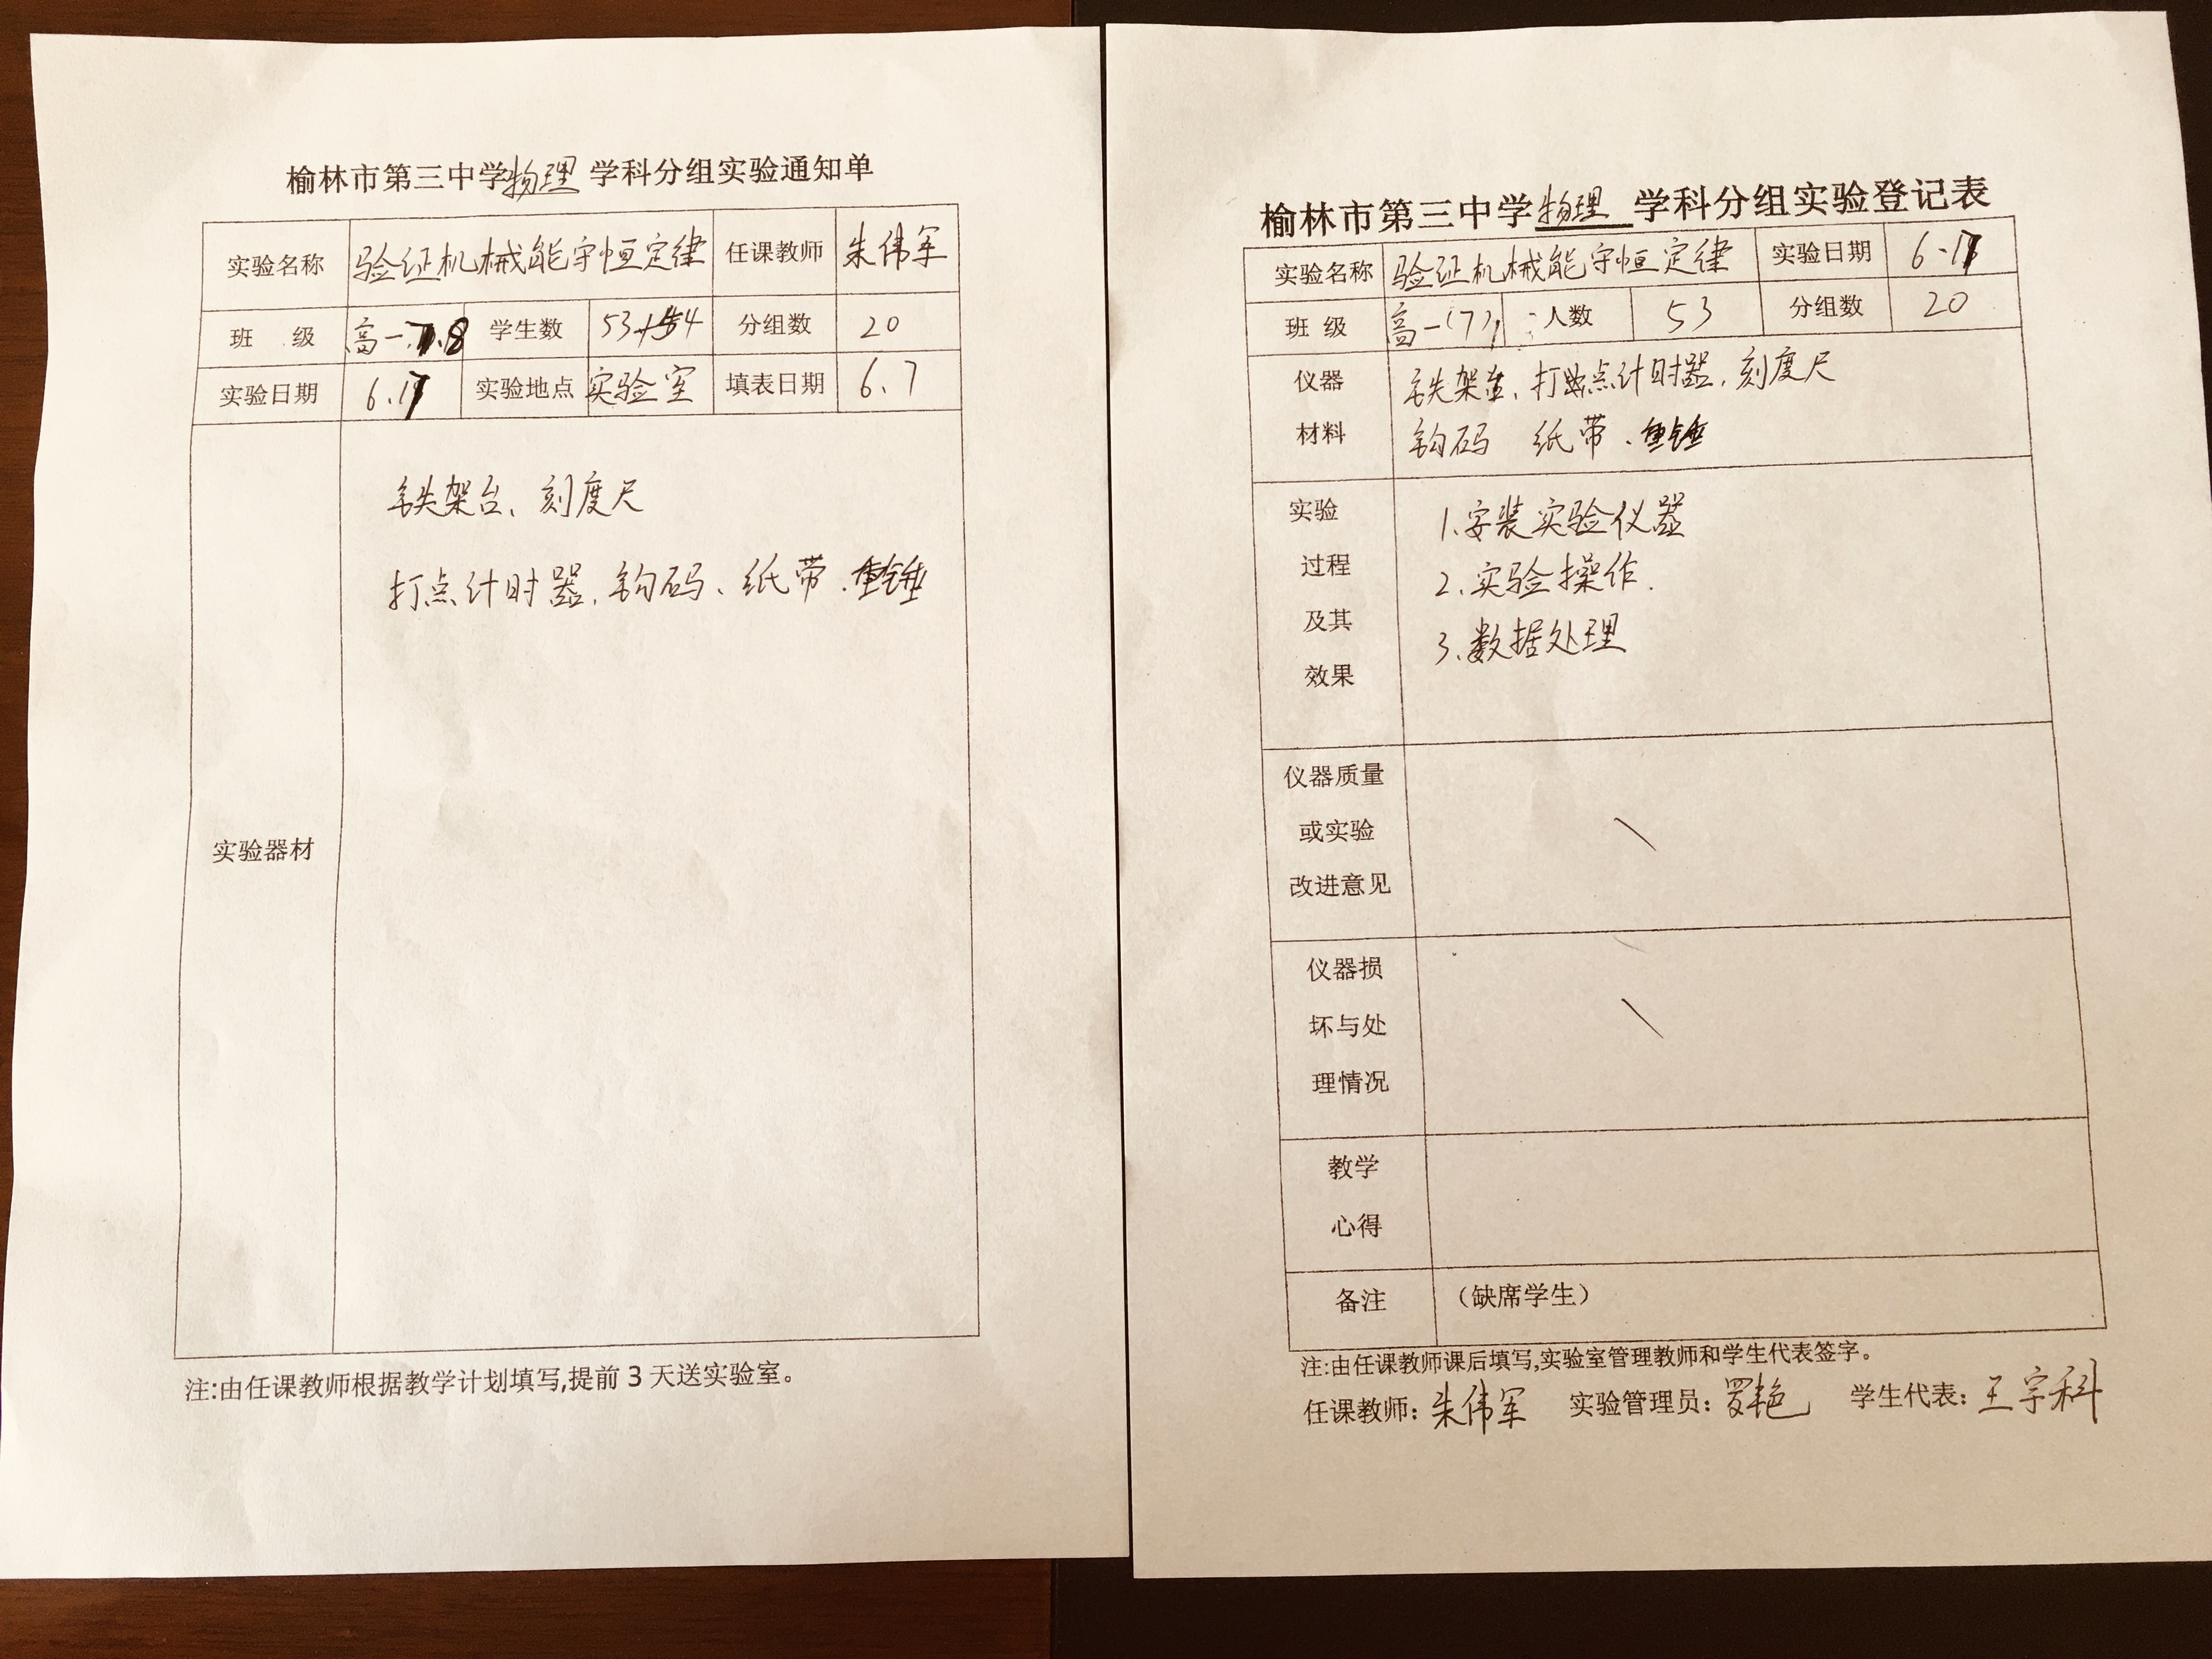 榆林市第三中学物理 学科分组实验通知单
实验名称 验证机械能守恒定律 任课教师 朱伟军
班 级 高一7.8 学生数 53+54 分组数 20
实验日期 6.17 实验地点 实验室 填表日期 6.7
实验器材
铁架台、刻度尺
打点计时器、钩码、纸带、重锤
注:由任课教师根据教学计划填写,提前3天送实验室。
榆林市第三中学物理 学科分组实验登记表
实验名称 验证机械能守恒定律 实验日期 6.17
班 级 高一(7) 人数 53 分组数 20
仪器
材料
铁架台、打点计时器、刻度尺
钩码 纸带、重锤
实验
过程
及其
效果
1.安装实验仪器
2.实验操作.
3.数据处理
仪器质量
或实验
改进意见
仪器损
坏与处
理情况
教学
心得
备注 （缺席学生）
注:由任课教师课后填写,实验室管理教师和学生代表签字。
任课教师：朱伟军 实验管理员：罗艳 学生代表：王宇科